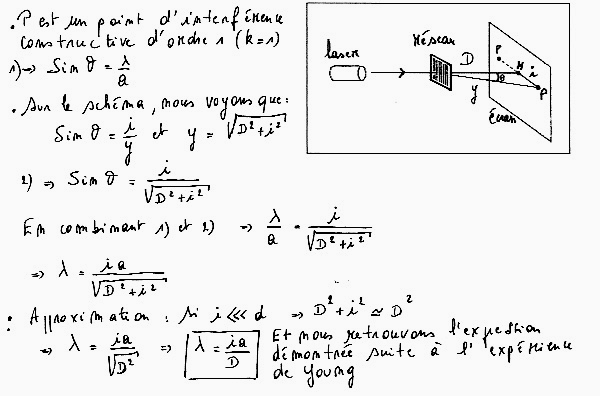 . P est un point d'interférence
constructive d'ordre 1 (k=1)
1)→ Sin θ = λ/a
. Sur le schéma, nous voyons que :
Sin θ = i/y et y = √(D²+i²)
2) ⇒ Sin θ = i/√(D²+i²)
En combinant 1) et 2) ⇒ λ/a = i/√(D²+i²)
⇒ λ = ia/√(D²+i²)
: Approximation : si i <<< d ⇒ D²+i² ≃ D²
⇒ λ = ia/√D² ⇒ λ = ia/D
Et nous retrouvons l'expession
démontrée suite à l'expérience
de Young
laser
Réseau
D
y
P
H
i
θ
P
Écran